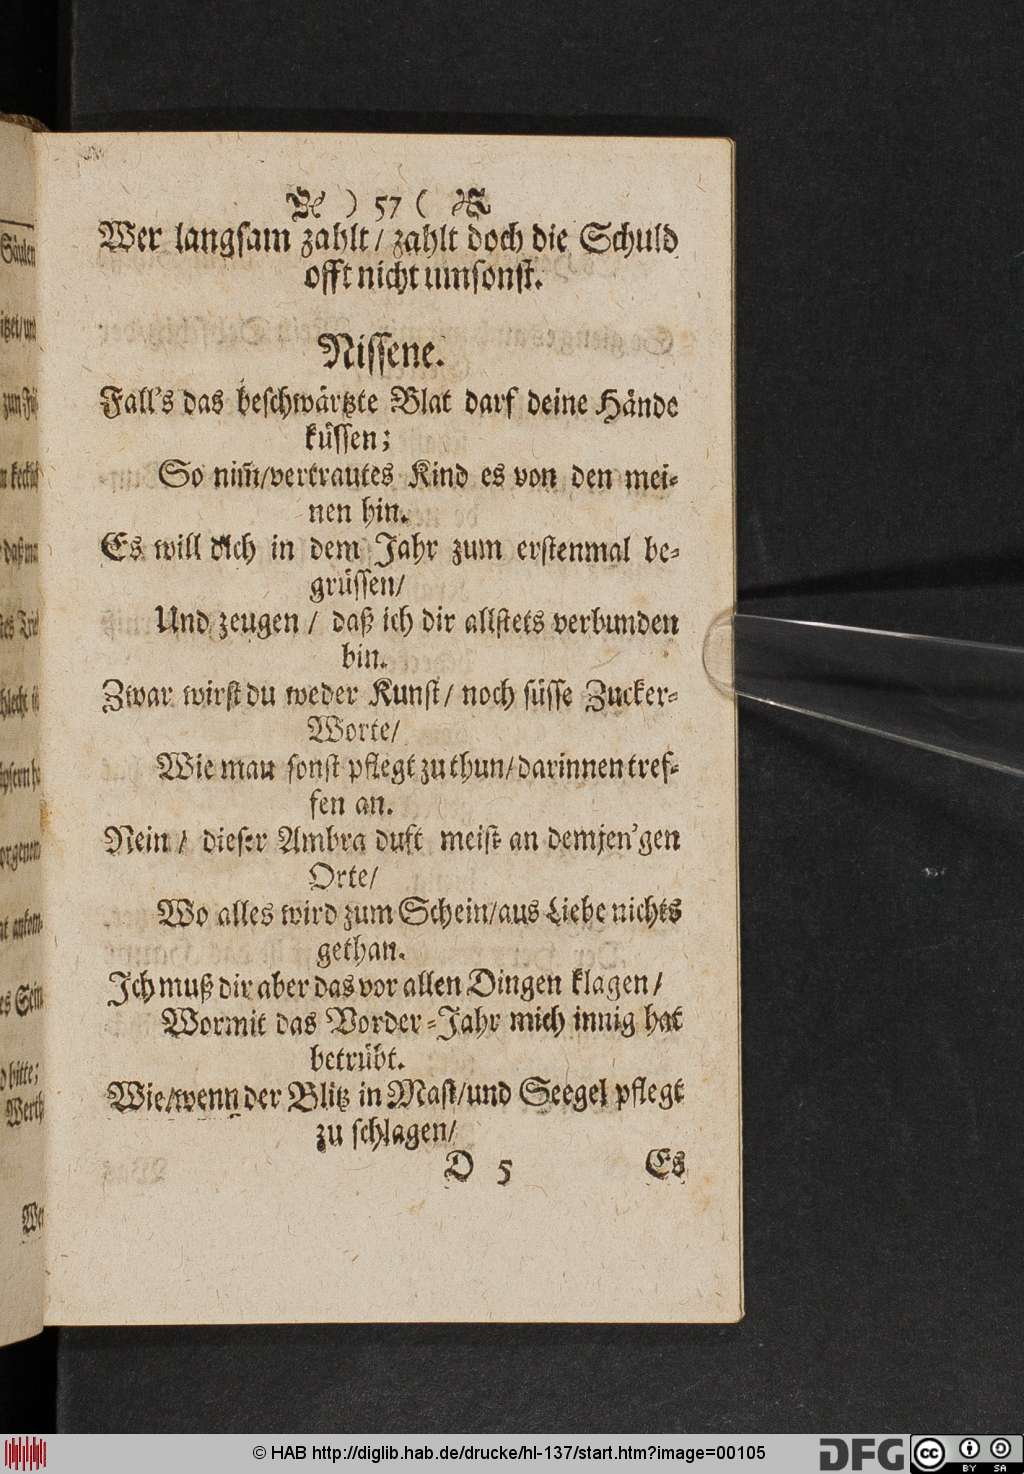 ) 57 (
Wer langsam zahlt / zahlt doch die Schuld
offt nicht umsonst.
Nissene.
Fall's das beschwärtzte Blat darf deine Hände
küssen;
So nim̃/vertrautes Kind es von den mei-
nen hin.
Es will dich in dem Jahr zum erstenmal be-
grüssen/
Und zeugen / daß ich dir allstets verbunden
bin.
Zwar wirst du weder Kunst / noch süsse Zucker-
Worte/
Wie mau sonst pflegt zu thun/darinnen tref-
fen an.
Nein / dieser Ambra duft meist an demjen'gen
Orte/
Wo alles wird zum Schein/aus Liebe nichts
gethan.
Ich muß dir aber das vor allen Dingen klagen /
Wormit das Vorder-Jahr mich innig hat
betrübt.
Wie/wenn der Blitz in Mast/und Seegel pflegt
zu schlagen/
D 5 Es
Säulen
itzet/und
keckn
daß
bitte;
Werth
© HAB http://diglib.hab.de/drucke/hl-137/start.htm?image=00105
DFG
cc
BY SA